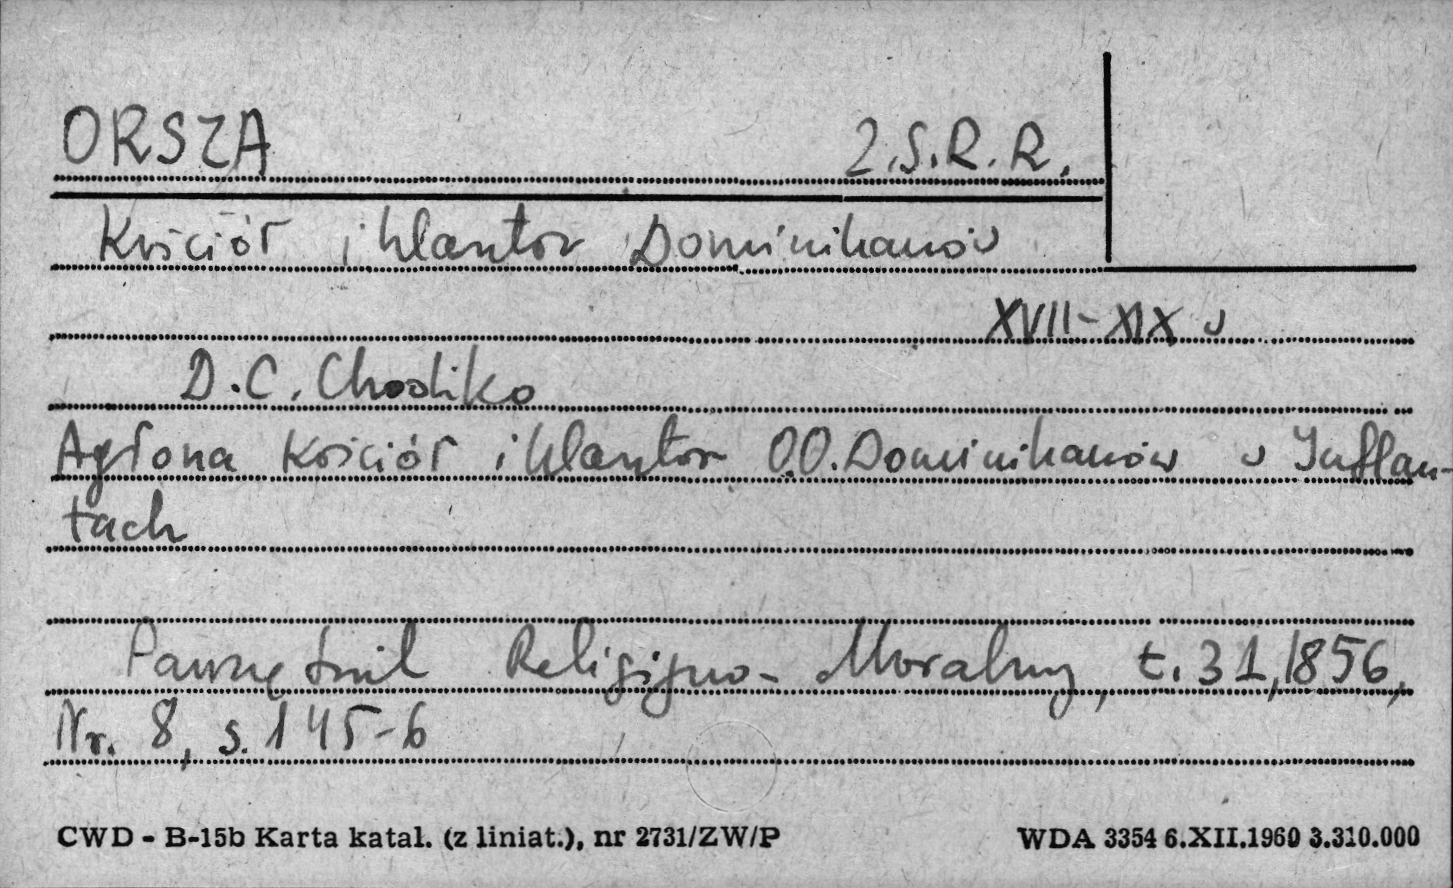 ORSZA Z.S.R.R.
Kościół i klasztor Dominikanów
XVII-XIX w
D.C. Chodźko
Agłona kościół i klasztor O.O. Dominikanów w Inflan-
tach
Pamiętnik Religijno-Moralny, t. 31, 1856,
Nr. 8, s. 145-6
CWD - B-15b Karta katal. (z liniat.), nr 2731/ZW/P WDA 3354 6.XII.1960 3.310.000